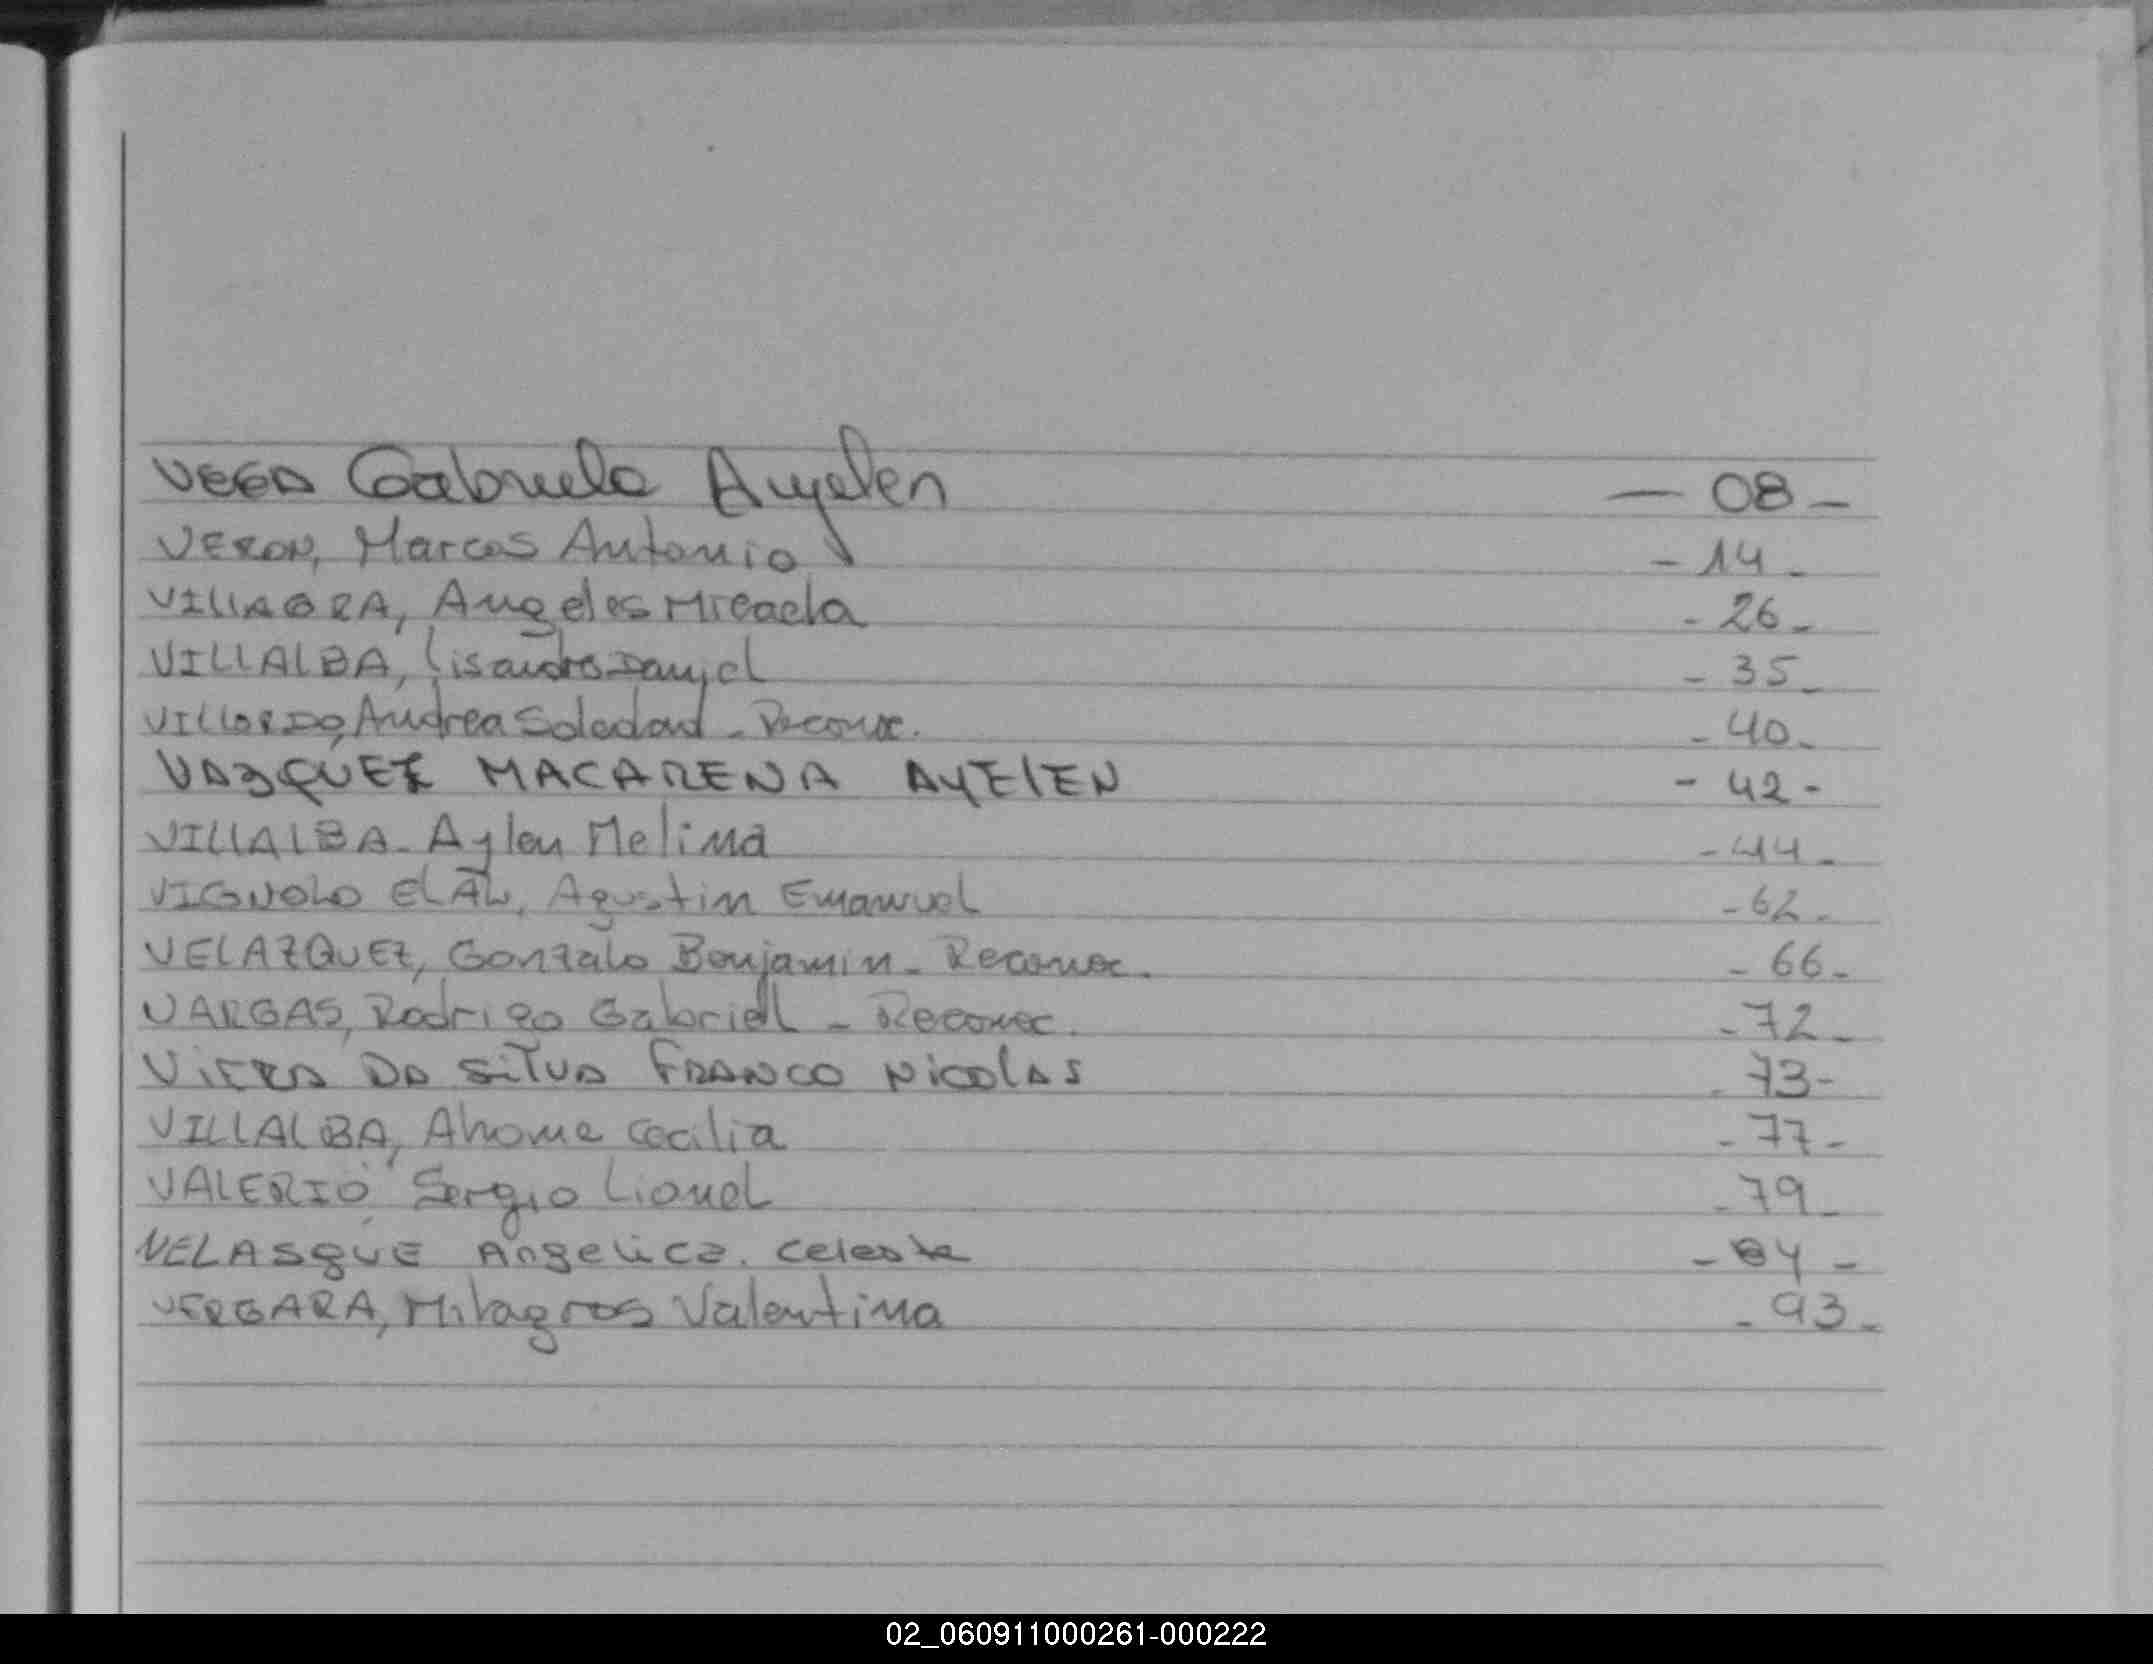 VEGA Gabriela Ayelen — 08 -
VERON, Marcos Antonio - 14 -
VILLAGRA, Angeles Micaela - 26 -
VILLALBA, Lisandro Daniel - 35 -
VILLORDO, Andrea Soledad - Reconoc. - 40 -
VAZQUEZ MACARENA AYELEN - 42 -
VILLALBA - Aylen Melina - 44 -
VIGNOLO Agustin Emanuel - 62 -
VELAZQUEZ, Gonzalo Benjamin - Reconoc. - 66 -
VARGAS, Rodrigo Gabriel - Reconoc. - 72 -
VIERA DA SILVA FRANCO NICOLAS - 73 -
VILLALBA, Ahome Cecilia - 77 -
VALERIO Sergio Lionel - 79 -
VELASQUE Angelica. Celeste - 84 -
VERGARA, Milagros Valentina - 93 -
02_060911000261-000222